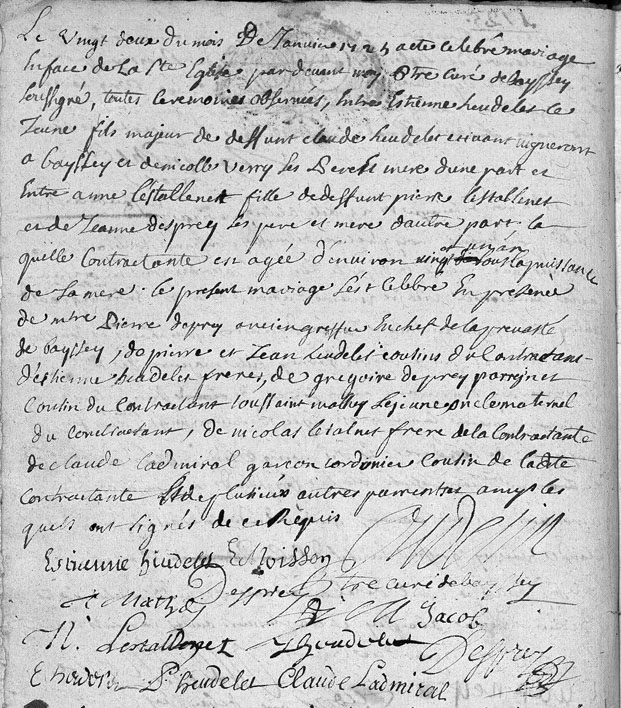 Le vingt deux du mois De Janvier 1725 acte celebré mariage
En face de La Ste Eglise par devant moy Ptre curé de boyssey
soussigné, toutes ceremonies observées, Entre Estienne heudelet le
Jeune fils majeur de deffunt claude heudelet vivant vigneront
a boyssey et de nicolle verry ses Pere et mere d'une part et
Entre anne lestallenet fille de deffunt pierre lestallenet
et de Jeanne desprey ses pere et mere d'autre part la
quelle contractante est agée d'environ vingt et un an sous la puissance
de sa mere. le present mariage s'est celebre En presence
de mtre Pierre deprey ancien greffier En chef de la prevosté
de boyssey, de pierre et Jean heudelet cousins du Contractant
d'estienne heudelet freres, de gregoire deprey parrein et
Cousin du contractant toussaint mathey Lejeune oncle maternel
du contractant, de nicolas lestalnet frere de la contractante
de claude Ladmiral garcon cordonier cousin de ladite
contractante Et de plusieurs autres parents et amys les
quels ont signés de ce Requis
Estienne heudelet E Moisson
Mathey Desprey Ptre curé de boyssey
M Jacob
N. Lestallenet J heudelet Desprey
E heudelet P heudelet Claude Ladmiral